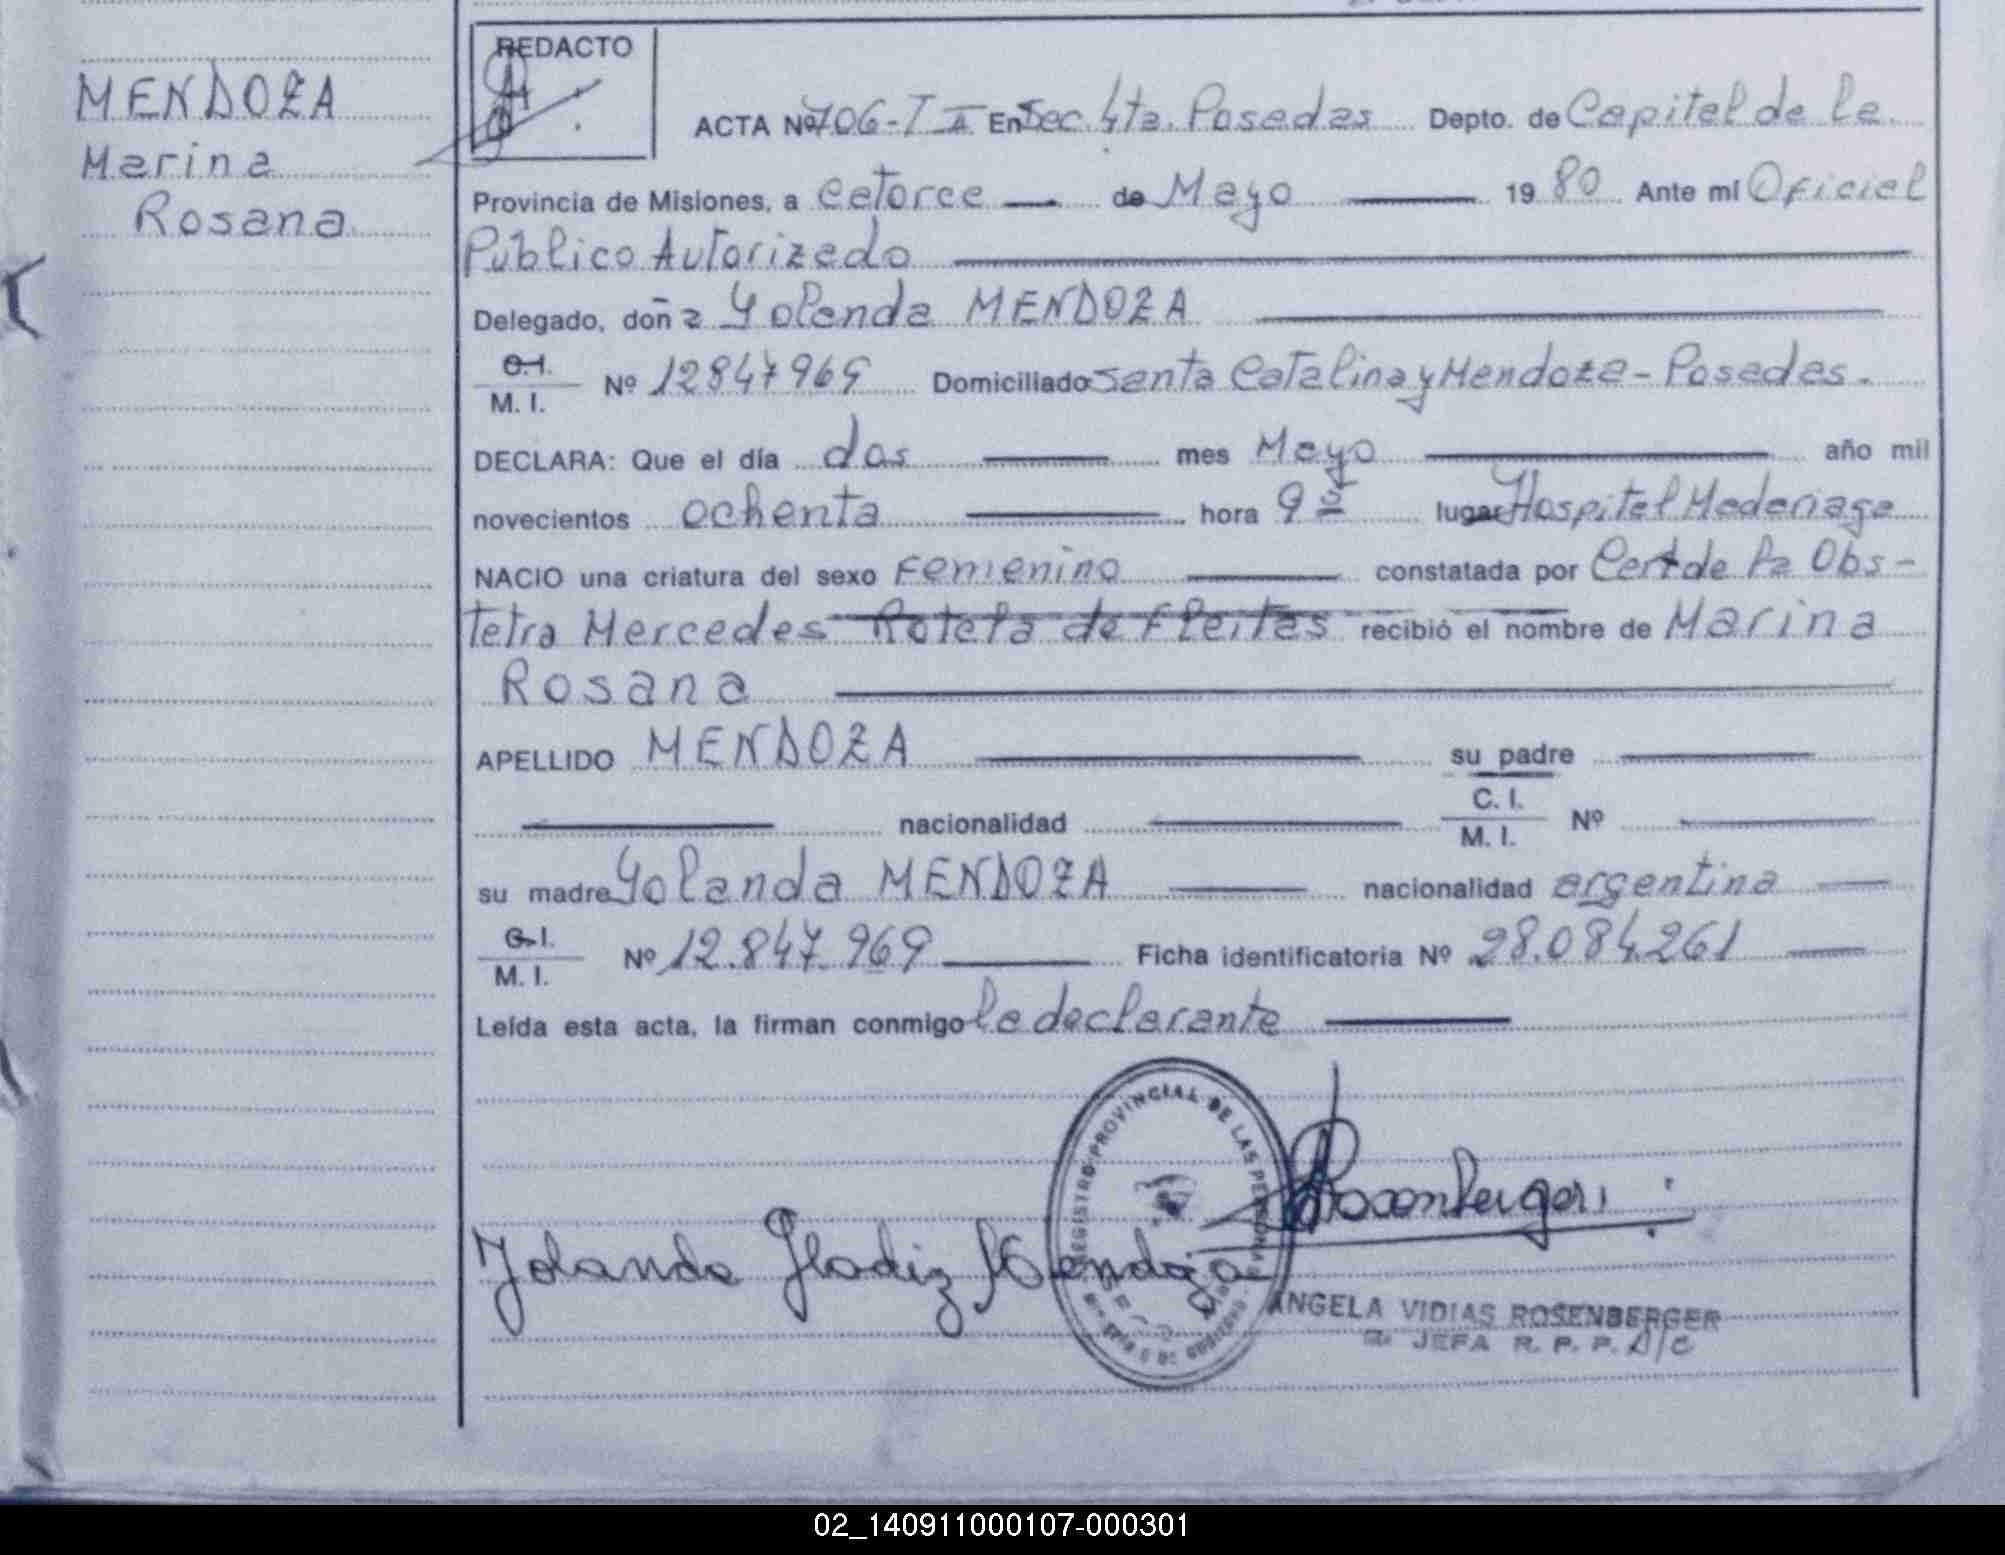 MENDOZA
Marina
Rosana
REDACTO
ACTA Nº 706-T II En Sec. 4ta. Posadas Depto. de Capital de la
Provincia de Misiones, a catorce de Mayo 1980 Ante mí Oficial
Público Autorizado
Delegado, doña Yolanda MENDOZA
C.I.
M. I. Nº 12847969 Domiciliado Santa Catalina y Mendoza - Posadas.
DECLARA: Que el día dos mes Mayo año mil
novecientos ochenta hora 9 lugar Hospital Madariaga
NACIO una criatura del sexo Femenino constatada por Cert de Pa Obs-
tetra Mercedes Rotela de Fleitas recibió el nombre de Marina
Rosana
APELLIDO MENDOZA su padre
nacionalidad C. I.
M. I. Nº
su madre Yolanda MENDOZA nacionalidad argentina
C.I.
M. I. Nº 12.847.969 Ficha identificatoria Nº 28.084.261
Leída esta acta, la firman conmigo la declarante
REGISTRO PROVINCIAL DE LAS PERSONAS
Rosenberger
Yolanda Gladiz Mendoza
ANGELA VIDIAS ROSENBERGER
JEFA R. P. P. A/C
02_140911000107-000301